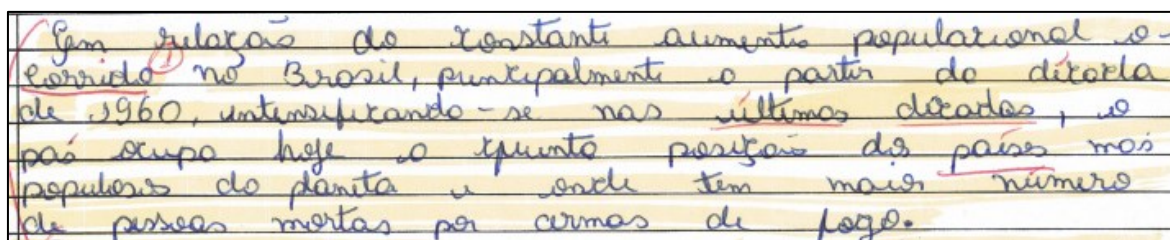 Em relação ao constante aumento populacional o-
corrido no Brasil, principalmente a partir da década
de 1960, intensificando-se nas últimas décadas, o
país ocupa hoje a quinta posição dos países mas
populosos do planeta e onde tem maior número
de pessoas mortas por armas de fogo.